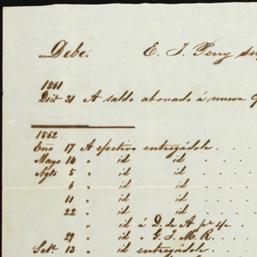 Debe. E. J. Perry
1861
Dic 31 A saldo abonado á nueva
1862
Eno 17 A efectivo entregádole . . .
Mayo 14 " id id . . .
Agto 5 " id id . . .
" 6 " id id . . .
" 11 " id id . . .
" 22 " id id . . .
" " id á D. de A pr
" 29 " id " G. J. M. R. . .
Set. 13 " id entregádole . .